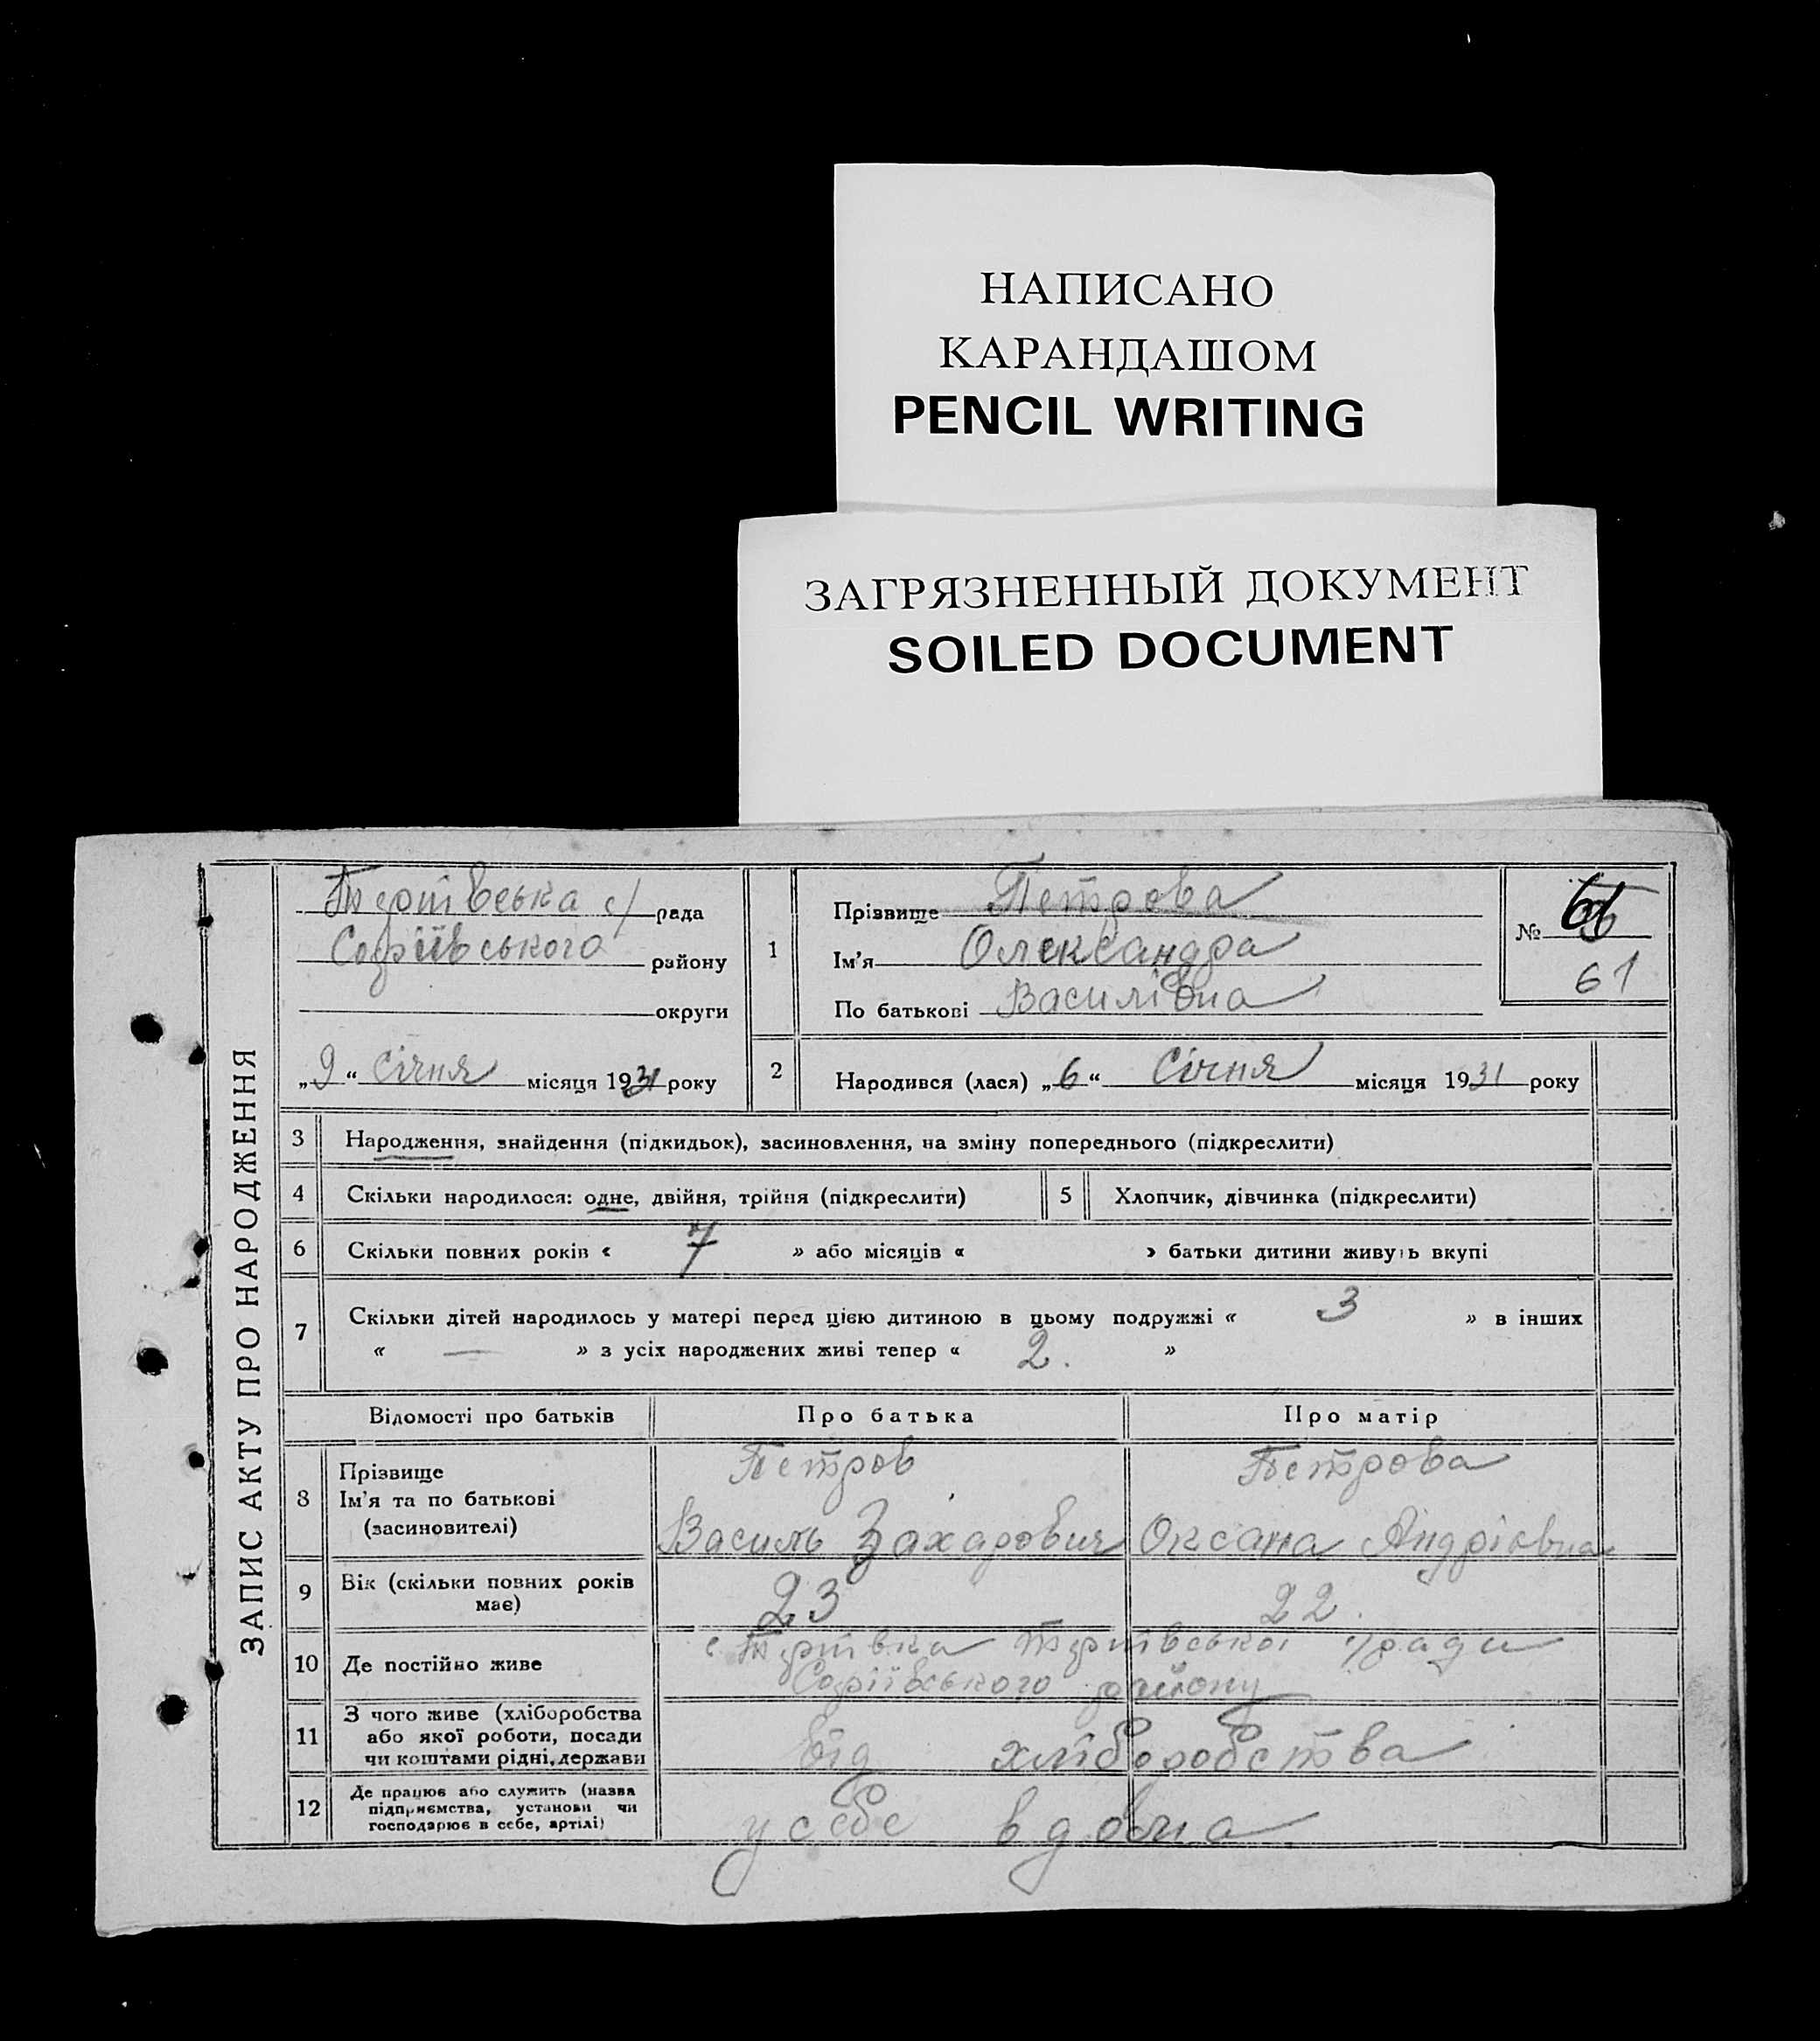 НАПИСАНО
КАРАНДАШОМ
PENCIL WRITING
ЗАГРЯЗНЕННЫЙ ДОКУМЕНТ
SOILED DOCUMENT
ЗАПИС АКТУ ПРО НАРОДЖЕННЯ
с/ рада
Софіївського району
округи
„9“ січня місяця 1931 року
1
Прізвище Петрова
Ім'я Олександра
По батькові Василівна
№
61
2 Народився (лася) „6“ Січня місяця 1931 року
3 Народження, знайдення (підкидьок), засиновлення, на зміну попереднього (підкреслити)
4 Скільки народилося: одне, двійня, трійня (підкреслити) 5 Хлопчик, дівчинка (підкреслити)
6 Скільки повних років « 7 » або місяців « » батьки дитини живуть вкупі
7 Скільки дітей народилось у матері перед цією дитиною в цьому подружжі « 3 » в інших
« — » з усіх народжених живі тепер « 2. »
Відомості про батьків Про батька Про матір
8 Прізвище Петров Петрова
Ім'я та по батькові
(засиновителі) Василь Захарович Оксана Андріівна
9 Вік (скільки повних років має) 23 22.
10 Де постійно живе с. с/ради
Софіївського району
11 З чого живе (хліборобства
або якої роботи, посади
чи коштами рідні, держави
від хліборобства
12 Де працює або служить (назва
підприємства, установи чи
господарює в себе, артілі)
у себе вдома